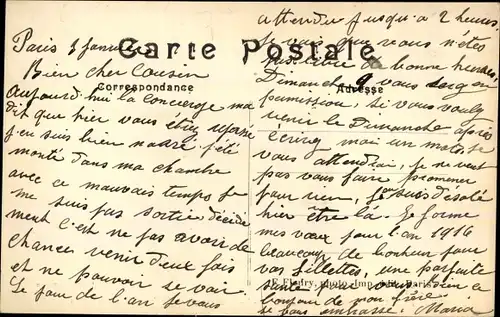 Carte Postale
Correspondance
Adresse
Paris 3 Janvier
Bien cher Cousin
Aujourd'hui la concierge ma
dit que hier vous étiez
j'en suis bien navré j'été
monté dans ma chambre
avec ce mauvais temps je
me suis pas sortie décidé
ment c'est ne pas avoir de
chances venir deux fois
et ne pouvoir se voir
Le jour de l'an je vous
attendu jusqu'a 2 heures
Je vais que vous n'étes
de bonne heure
Dimanche 9 vous serez en
permission, si vous voulez
venir le Dimanche après
écrivez moi un mot je
vous attendrai, je ne veut
pas vous faire promener
pour rien, je suis désolé
hier être là. Je forme
mes vœux pour l'an 1916
beaucoup de bonheur pour
vos fillettes, une parfaite
santé pour vous bien a
bonjour de mon frère
je vous embrasse. Maria
E. Fleury, photo. Imp. édit. Paris